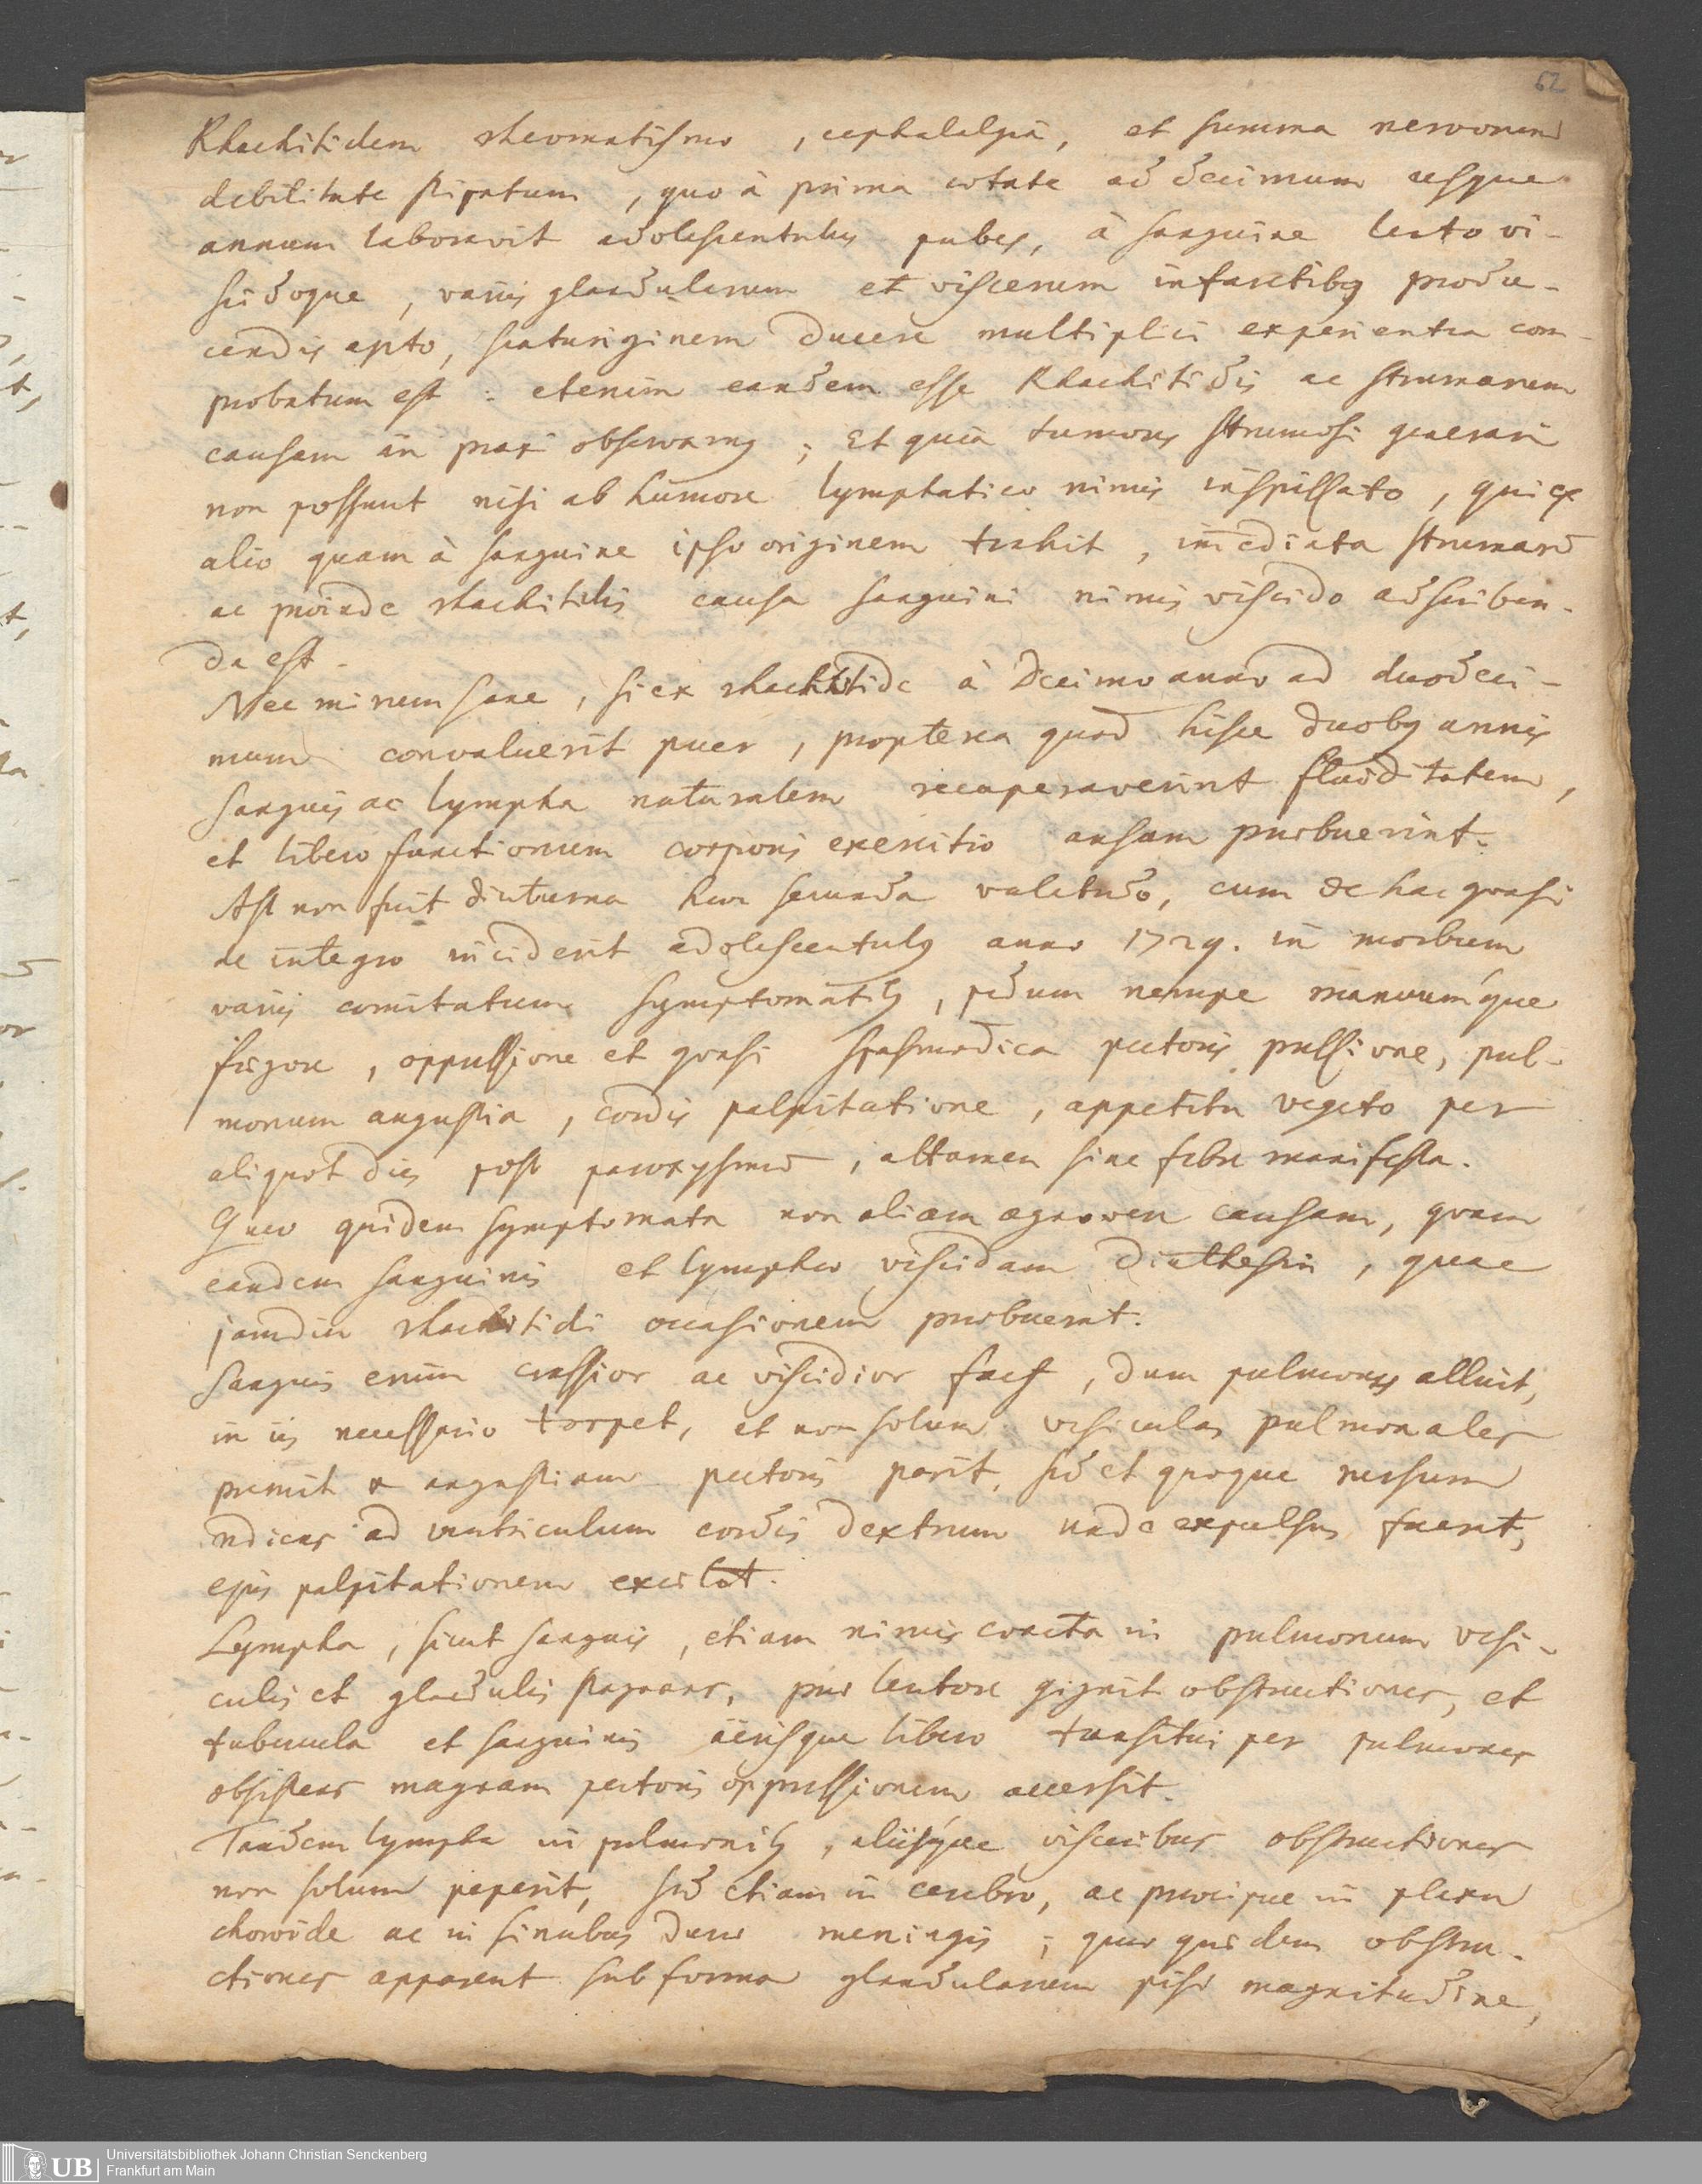 62
Rhachitidem rheomatismo, cephalalgiâ, et summa nervorum
debilitate stipatum, quo à prima ætate ad decimum usque
annum laboravit adolescentulus pubes, à sanguine lento vi-
scidoque, variis glandularum et viscerum infarctibus produ-
cendis apto, scaturiginem ducere multiplici experientia com-
probatum est: etenim eandem esse Rhachitidis ac strumarum
causam in praxi observamus; Et quia tumores strumosi generari
non possunt nisi ab humore lymphatico nimis inspissato, qui ex
alio quam à sanguine ipso originem trahit, imediata strumarum
ac proinde rhachitidis causa sanguini nimis viscido adscriben-
da est.
Nec mirum sane, si ex rhachitide à decimo anno ad duodeci-
mum convaluerit puer, propterea quod hisce duobus annis
sanguis ac lympha naturalem recuperaverint fluiditatem,
et libero functionum corporis exercitio ansam præbuerint.
Ast non fuit diuturna hæc secunda valetudo, cum de hac quasi
de integro inciderit adolescentulus anno 1729. in morbum
variis comitatum symptomatibus, pedum nempe manuumque
frigore, oppressione et quasi spasmodica pectoris pressione, pul-
monum angustia, cordis palpitatione, appetitu vegeto per
aliquot dies post paroxysmum, attamen sine febri manifesta.
Quæ quidem symptomata non aliam agnovere causam, quam
eandem sanguinis et lymphæ viscidam diathesin, quae
jamdiu rhachitidi occasionem præbuerat.
Sanguis enim crassior ac viscidior factus, dum pulmones alluit,
in iis necessario torpet, et non solum vesiculas pulmonales
premit & angustiam pectoris parit, sed et quoque rursum
rediens ad ventriculum cordis dextrum unde expulsus fuerat,
ejus palpitationem excitat.
Lympha, sicut sanguis, etiam nimis concreta in pulmonum vesi-
culis et glandulis stagnans, præ lentore gignit obstructiones, et
tubercula et sanguinis aerisque libero transitui per pulmones
obsistens magnam pectoris oppressionem accersit.
Tandem lympha in pulmonibus, aliisque visceribus obstructiones
non solum peperit, sed etiam in cerebro, ac præcipue in plexu
choroide ac in sinubus duræ meningis; quæ quidem obstru-
ctiones apparent sub forma glandularum pisi magnitudine,
UB Universitätsbibliothek Johann Christian Senckenberg
Frankfurt am Main